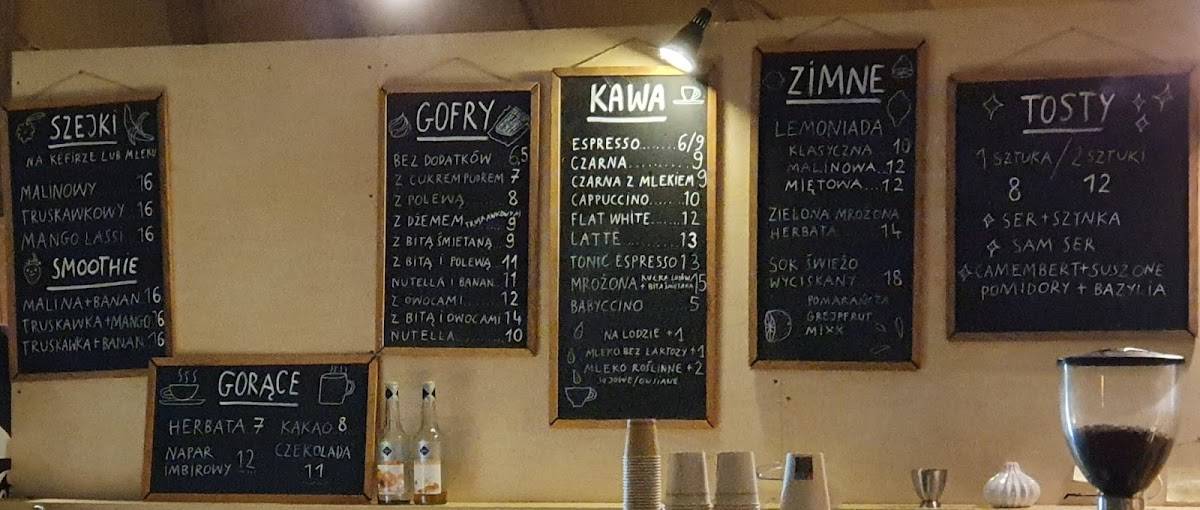 SZEJKI
NA KEFIRZE LUB MLEKU
MALINOWY 16
TRUSKAWKOWY 16
MANGO LASSI 16
SMOOTHIE
MALINA+BANAN 16
TRUSKAWKA+MANGO 16
TRUSKAWKA+BANAN 16
GORĄCE
HERBATA 7
NAPAR
IMBIROWY 12
KAKAO 8
CZEKOLADA
11
GOFRY
BEZ DODATKÓW 6,5
Z CUKREM PUDREM 7
Z POLEWĄ 8
Z DŻEMEM TRUSKAWKOWYM 9
Z BITĄ ŚMIETANĄ 9
Z BITĄ I POLEWĄ 11
NUTELLA I BANAN 11
Z OWOCAMI 12
Z BITĄ I OWOCAMI 14
NUTELLA 10
KAWA
ESPRESSO.......6/9
CZARNA 9
CZARNA Z MLEKIEM 9
CAPPUCCINO 10
FLAT WHITE 12
LATTE 13
TONIC ESPRESSO 13
MROŻONA KULKA LODÓW + BITA ŚMIETANA 15
BABYCCINO 5
NA LODZIE +1
MLEKO BEZ LAKTOZY +1
MLEKO ROŚLINNE +2
SOJOWE/OWSIANE
ZIMNE
LEMONIADA
KLASYCZNA 10
MALINOWA...12
MIĘTOWA...12
ZIELONA MROŻONA
HERBATA 14
SOK ŚWIEŻO
WYCISKANY 18
POMARAŃCZA
GREJPFRUT
MIXX
TOSTY
1 SZTUKA / 2 SZTUKI
8 12
SER+SZYNKA
SAM SER
CAMEMBERT+SUSZONE
POMIDORY + BAZYLIA